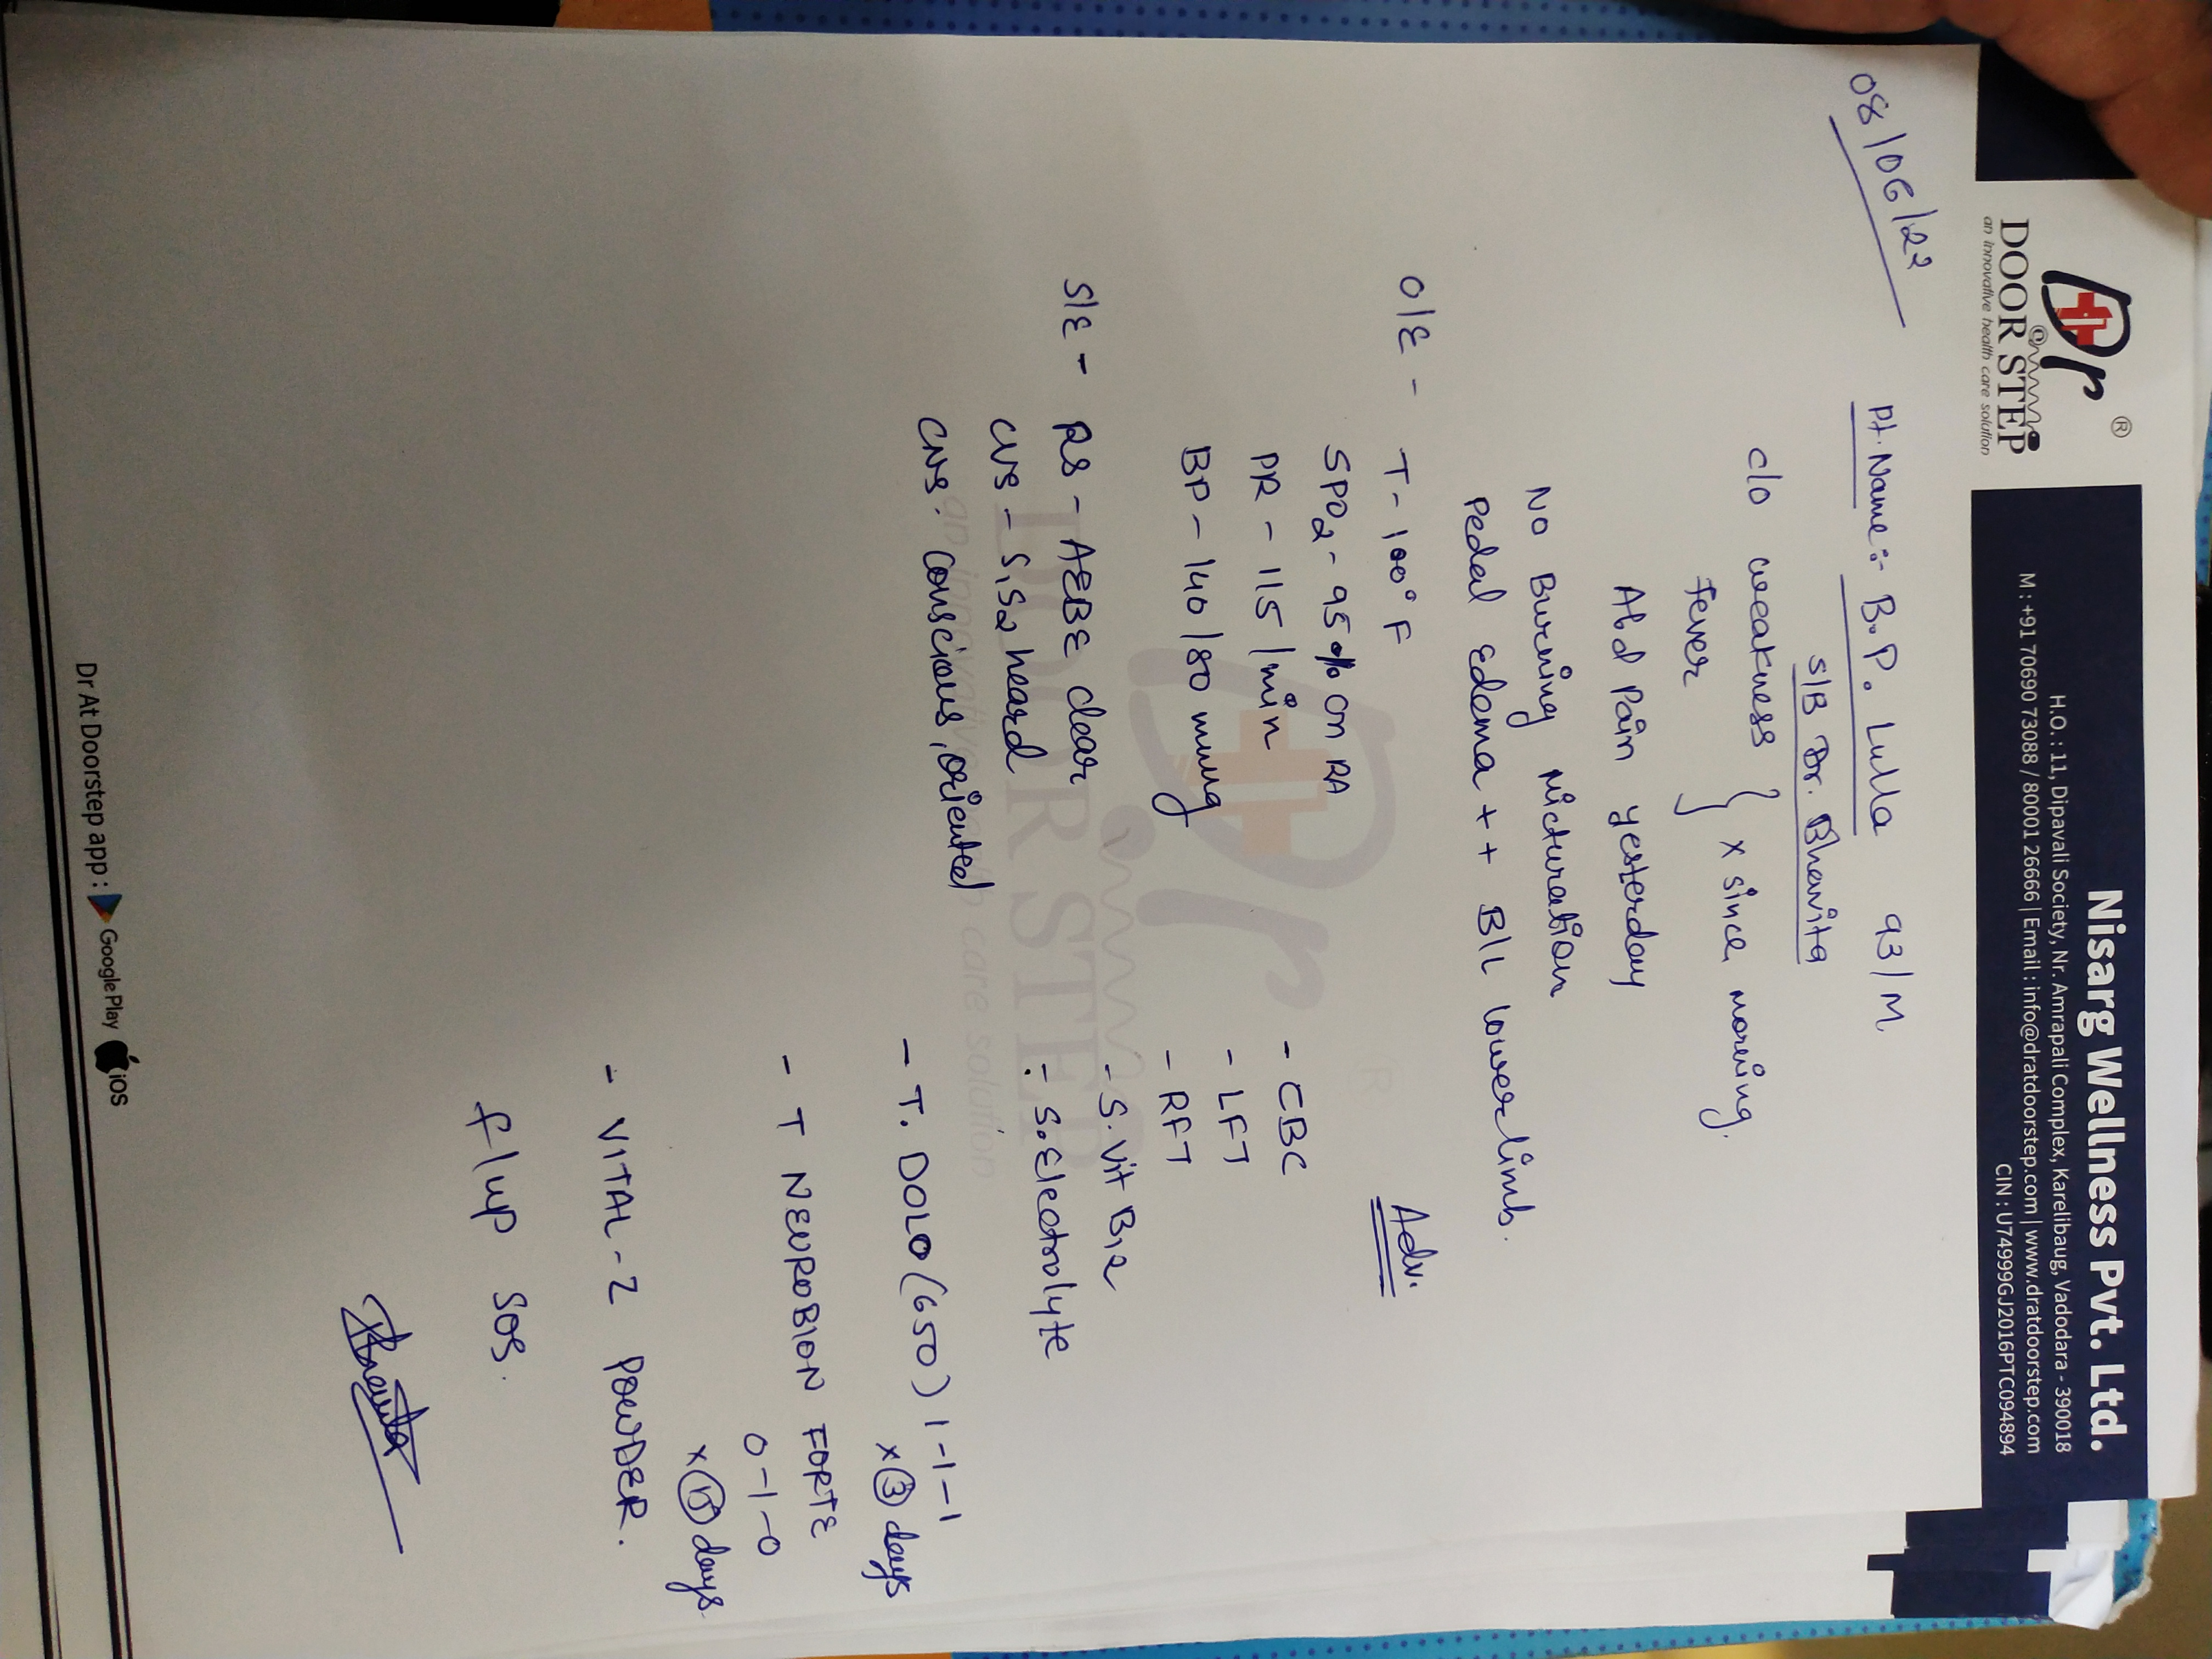 Dr ®
@
DOOR STEP
an innovative health care solution
Nisarg Wellness Pvt. Ltd.
H.O. : 11, Dipavali Society, Nr. Amrapali Complex, Karelibaug, Vadodara - 390018
M : +91 70690 73088 / 80001 26666 | Email : info@dratdoorstep.com | www.dratdoorstep.com
CIN : U74999GJ2016PTC094894
08/06/22
Pt. Name :- B.P. Lulla 93/M
S/B Dr. Bhavita
c/o weakness
Fever
} x since morning.
Abd Pain yesterday
No Burning Micturation
Pedal Edema ++ B/L lowerlimb.
O/E -
T- 100° F
SPO2 - 95% on RA
PR - 115 /min
BP - 140/80 mmHg
S/E - RS - AEBE clear
CVS - S1S2 heard
CNS. Conscious, oriented
Adv.
- CBC
- LFT
- RFT
- S. Vit B12
- S. Electrolyte
- T. DOLO (650) 1-1-1
x 3 days
- T NEUROBION FORTE
0-1-0
x 15 days
- VITAL-Z POWDER.
f/up SOS.
Bhavita
Dr ®
DOOR STEP
an innovative health care solution
Dr At Doorstep app : Google Play iOS